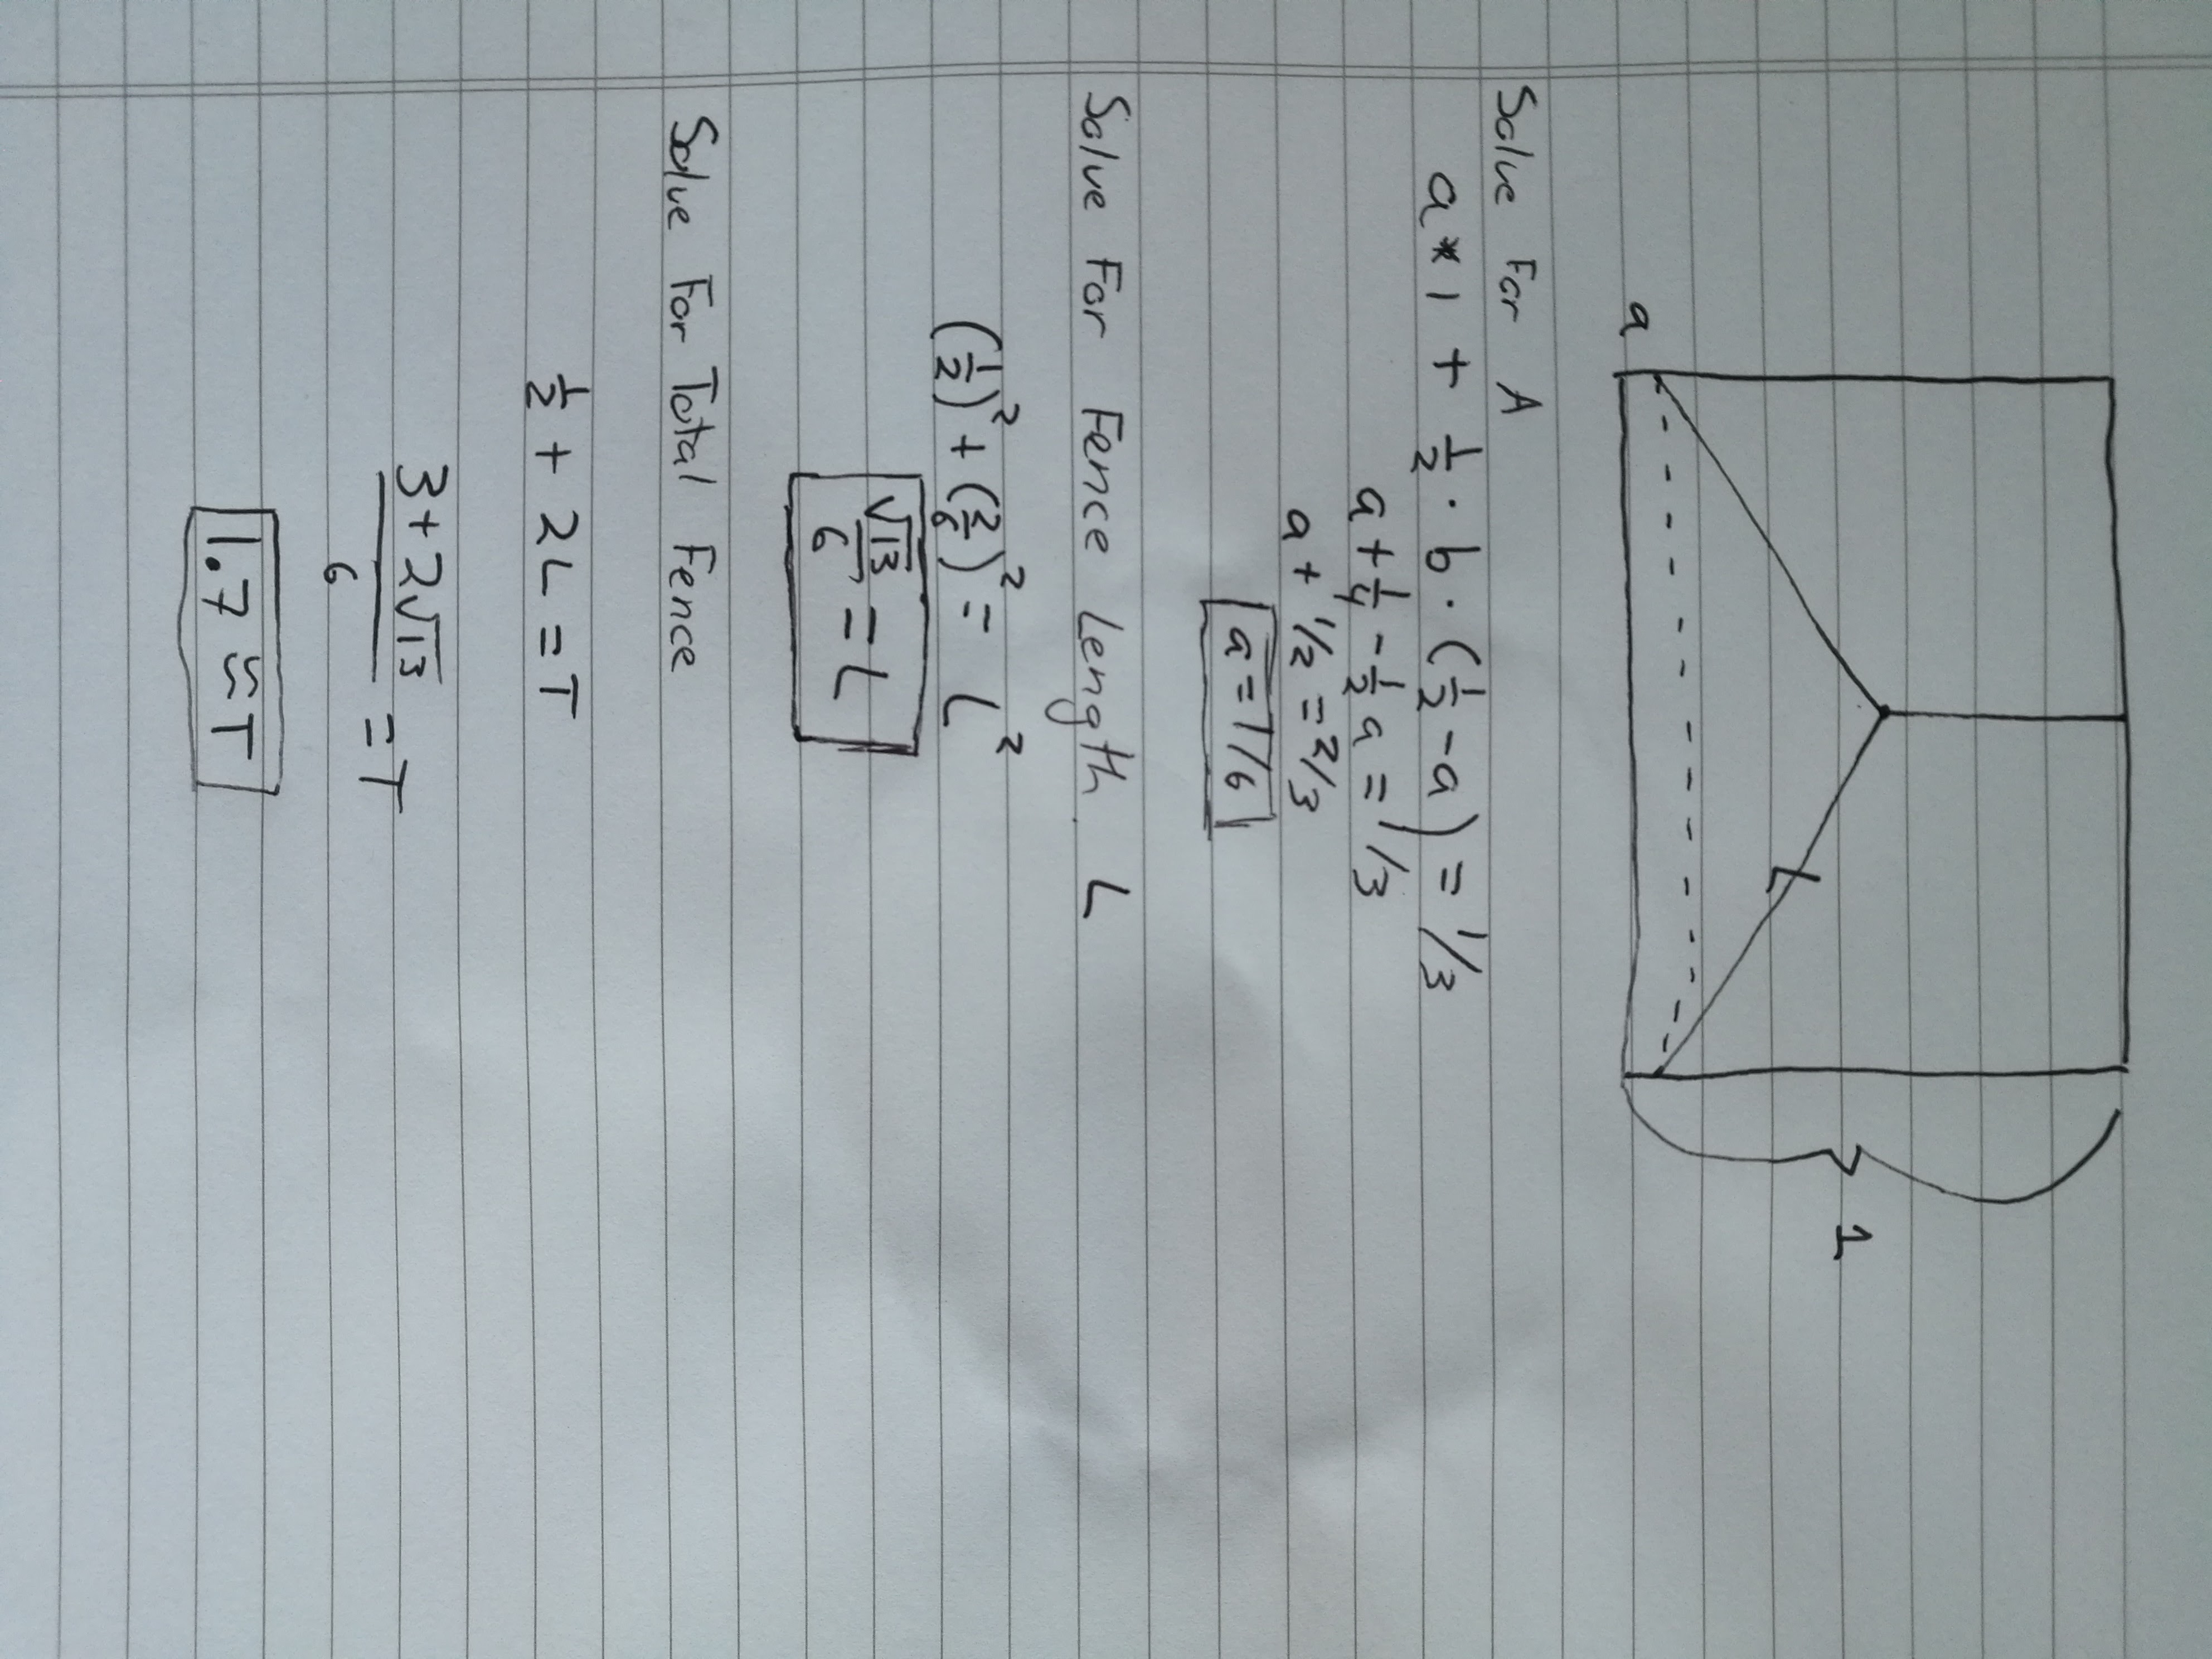 a
1
Solve For A
a * 1 + 1/2 · b · (1/2 - a) = 1/3
a + 1/4 - 1/2 a = 1/3
a + 1/2 = 2/3
a = 1/6
Solve For Fence Length L
(1/2)² + (2/6)² = L²
√13/6 = L
Solve For Total Fence
1/2 + 2L = T
3 + 2√13 / 6 = T
1.7 ≈ T